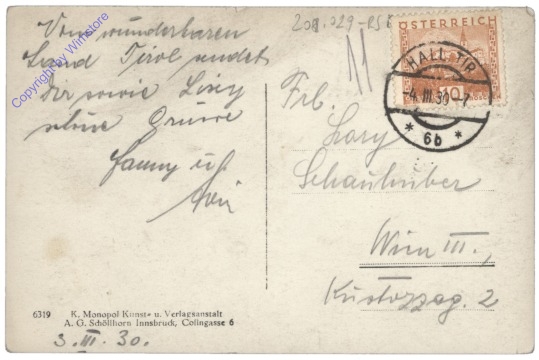 Vom wunderbaren
Land Tirol sendet
Dir sowie Lixy
schöne Grüsse
Fanny u.
208.029-RS
ÖSTERREICH
10
HALL, TIR
-4.III.30-7
* 6b *
Frl.
Schauhuber
Wien III.,
Kustozzag. 2
6319 K. Monopol Kunst- u. Verlagsanstalt
A. G. Schöllhorn Innsbruck, Colingasse 6
3. III. 30.
Copyright by Winstore